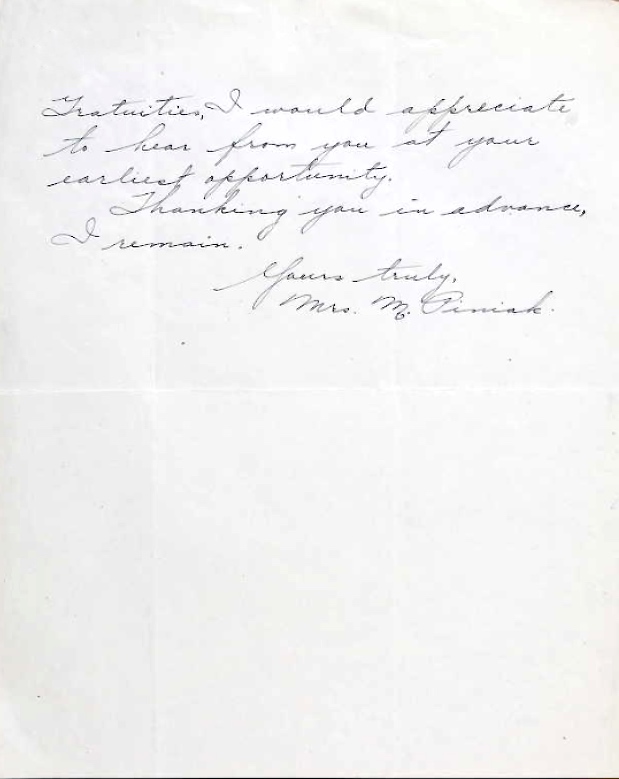 Gratuities, I would appreciate
to hear from you at your
earliest opportunity.
Thanking you in advance,
I remain.
Yours truly,
Mrs. M. Piniak.